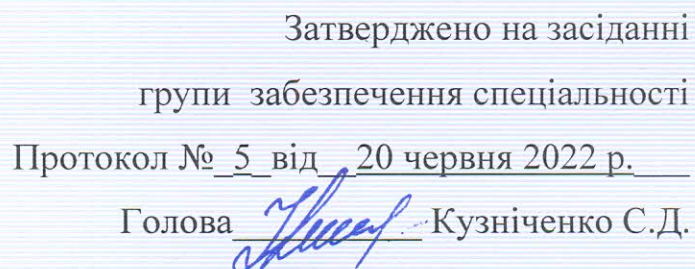 Затверджено на засіданні
групи забезпечення спеціальності
Протокол №_5_від__20 червня 2022 р.___
Голова____________ Кузніченко С.Д.